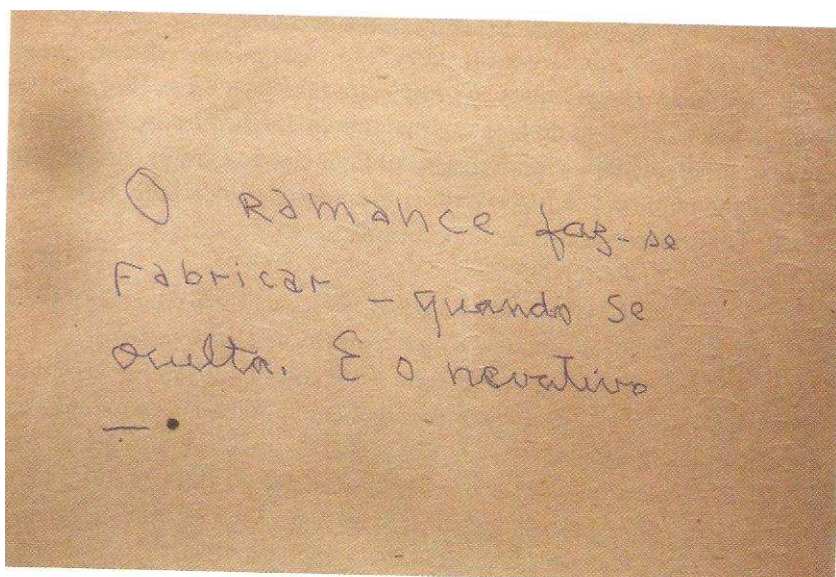 O Ramance faz-se
Fabricar – quando se
oculta. E o nevativo
— •